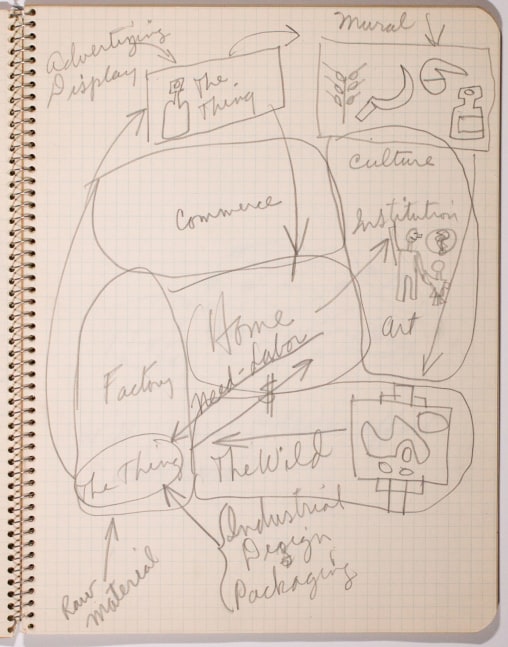 Advertizing
Display
The
Thing
Mural
Culture
Commerce
Institution
Art
Home
Need-Labor
$
Factory
The Thing
The Wild
Industrial
Design
&
Packaging
Raw
Material